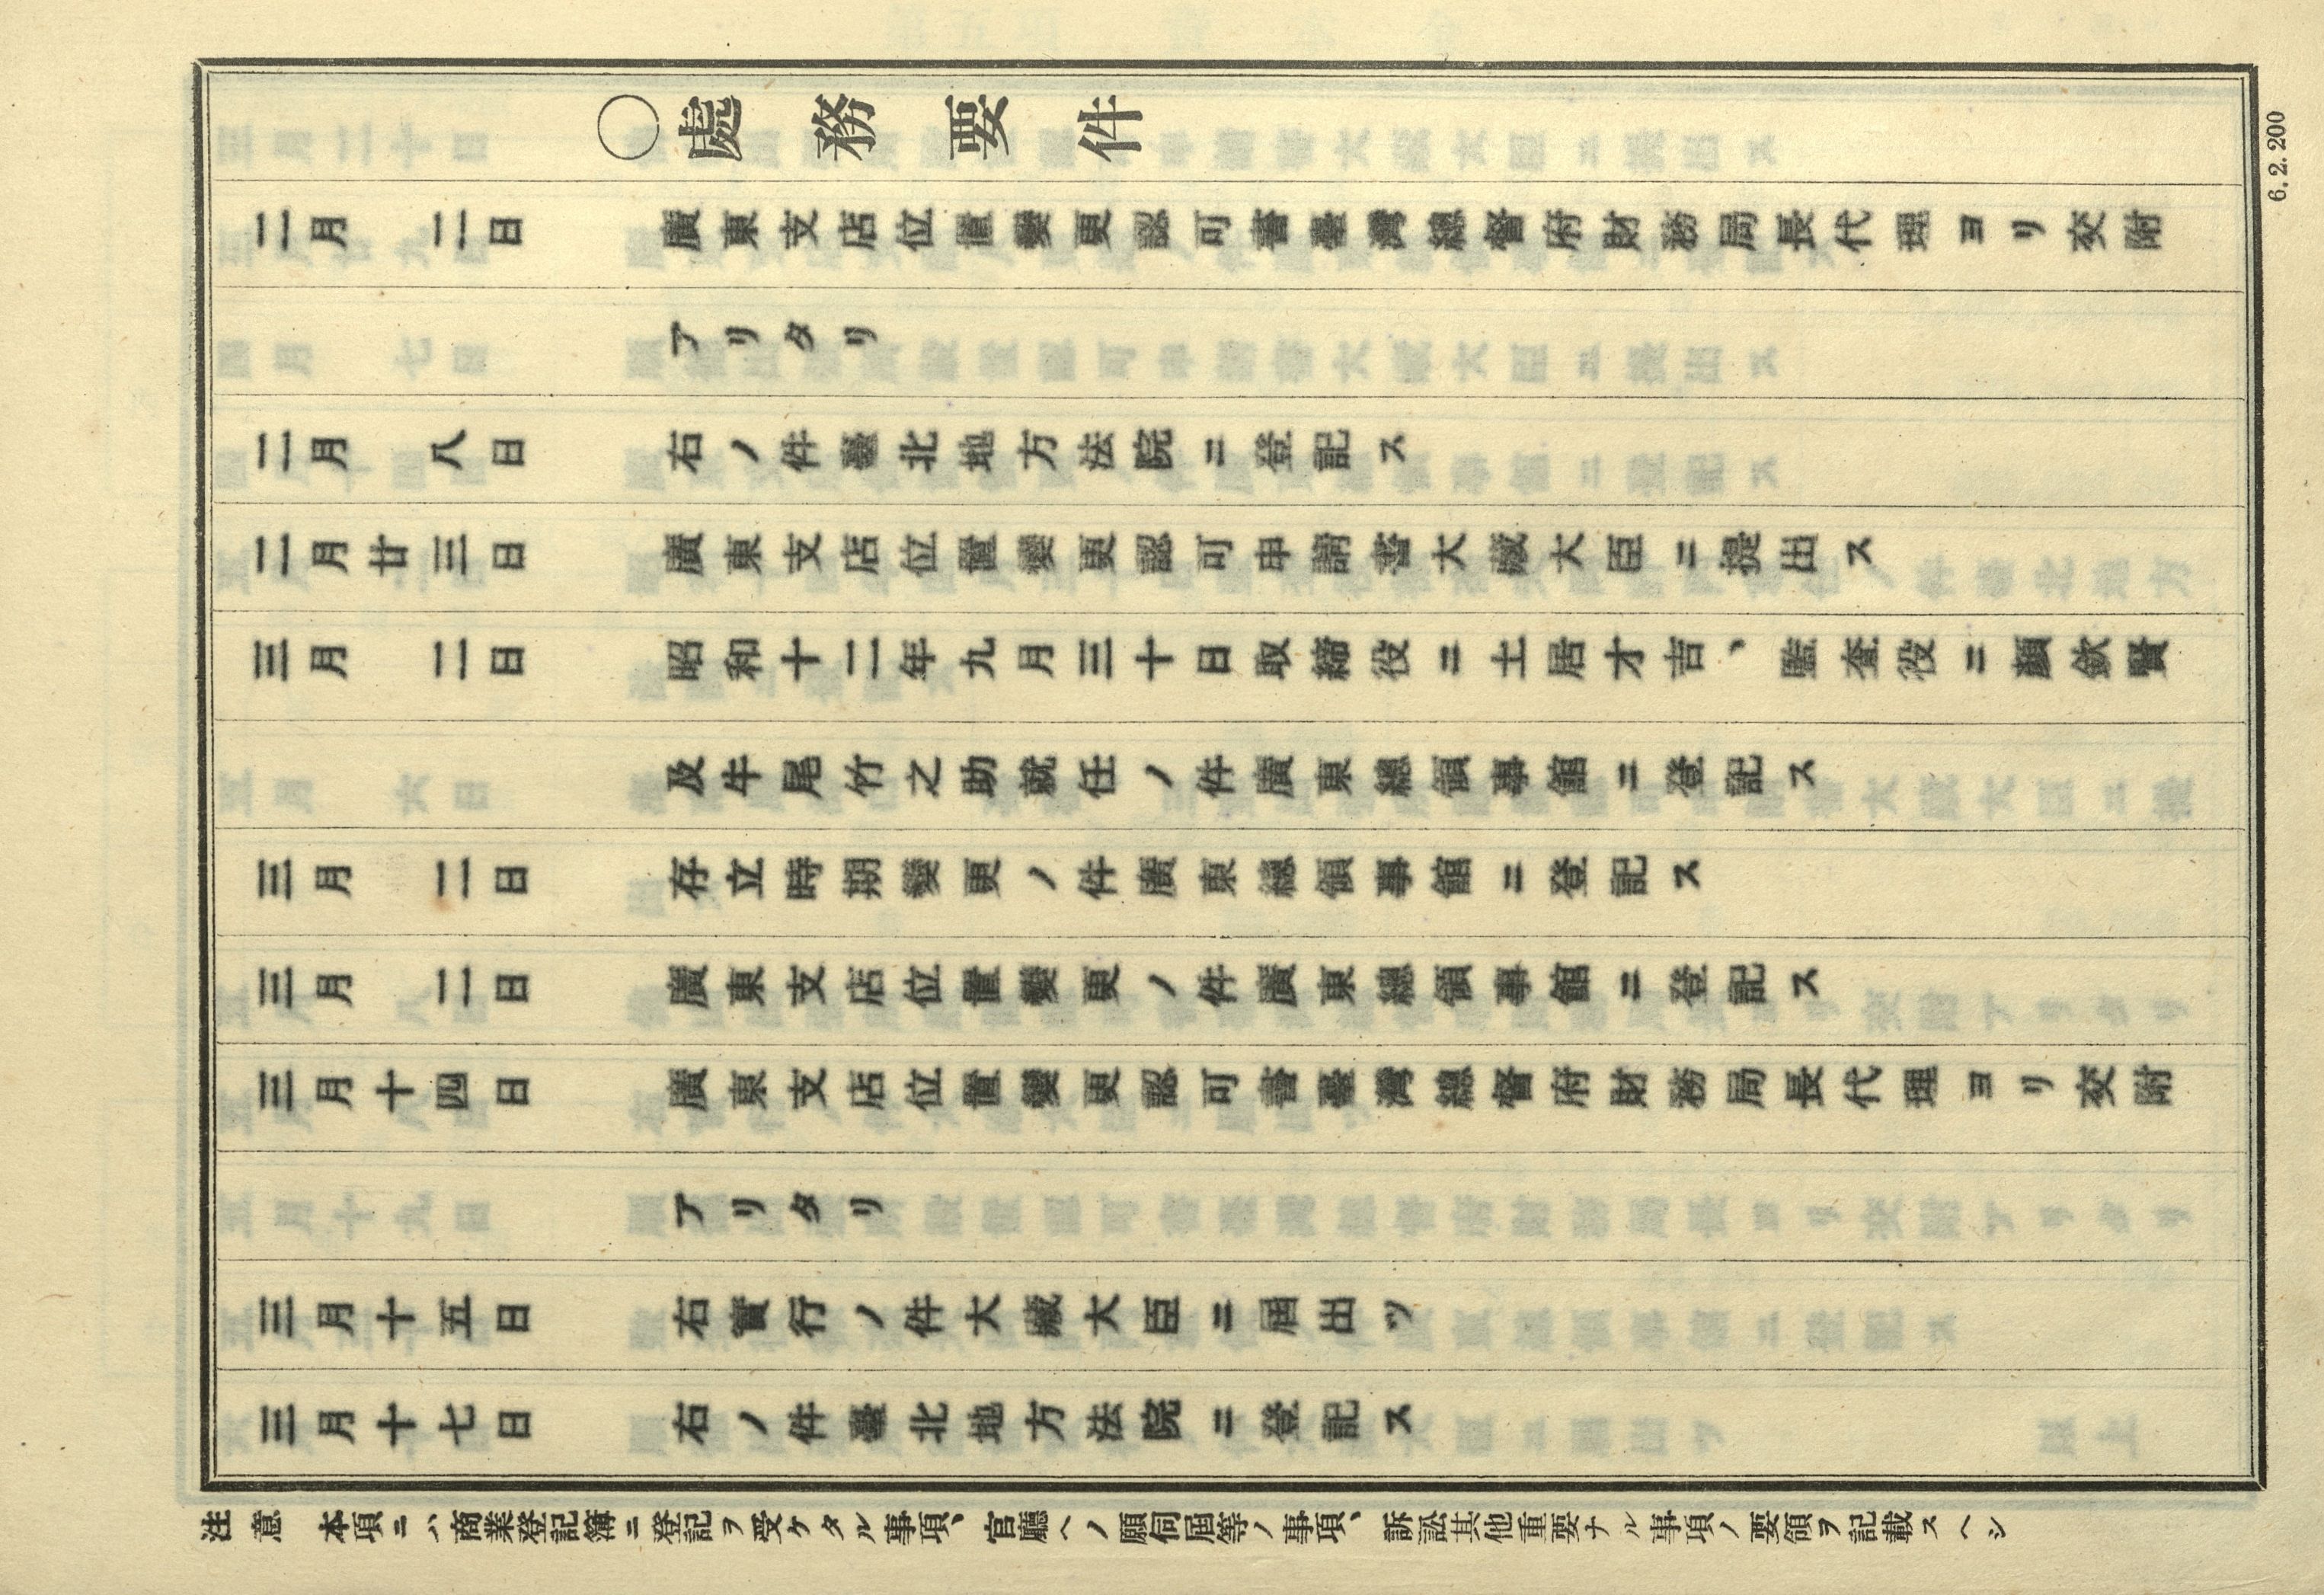 ○處務要件
二月二日 廣東支店位置變更認可書臺灣總督府財務局長代理ヨリ交附
アリタリ
二月八日 右ノ件臺北地方法院ニ登記ス
二月廿三日 廣東支店位置變更認可申請書大藏大臣ニ提出ス
三月二日 昭和十二年九月三十日取締役ニ土居才吉、監査役ニ顏欽賢
及牛尾竹之助就任ノ件廣東總領事館ニ登記ス
三月二日 存立時期變更ノ件廣東總領事館ニ登記ス
三月二日 廣東支店位置變更ノ件廣東總領事館ニ登記ス
三月十四日 廣東支店位置變更認可書臺灣總督府財務局長代理ヨリ交附
アリタリ
三月十五日 右實行ノ件大藏大臣ニ屆出ツ
三月十七日 右ノ件臺北地方法院ニ登記ス
注意 本項ニハ商業登記簿ニ登記ヲ受ケタル事項、官廳ヘノ願伺屆等ノ事項、訴訟其他重要ナル事項ノ要領ヲ記載スヘシ
6.2.200